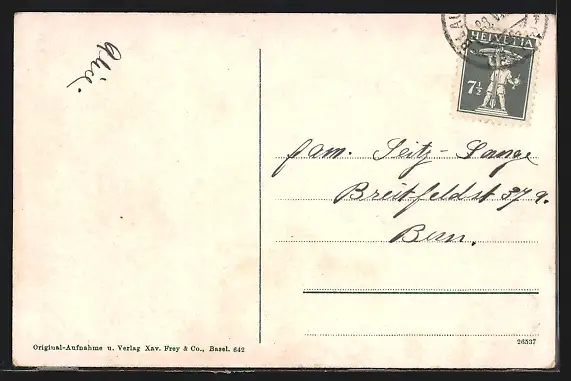 Alice.
HELVETIA
7½
Fam. Seitz-Lange
Breitfeldst 37 a.
Bern.
Original-Aufnahme u. Verlag Xav. Frey & Co., Basel. 642
26537